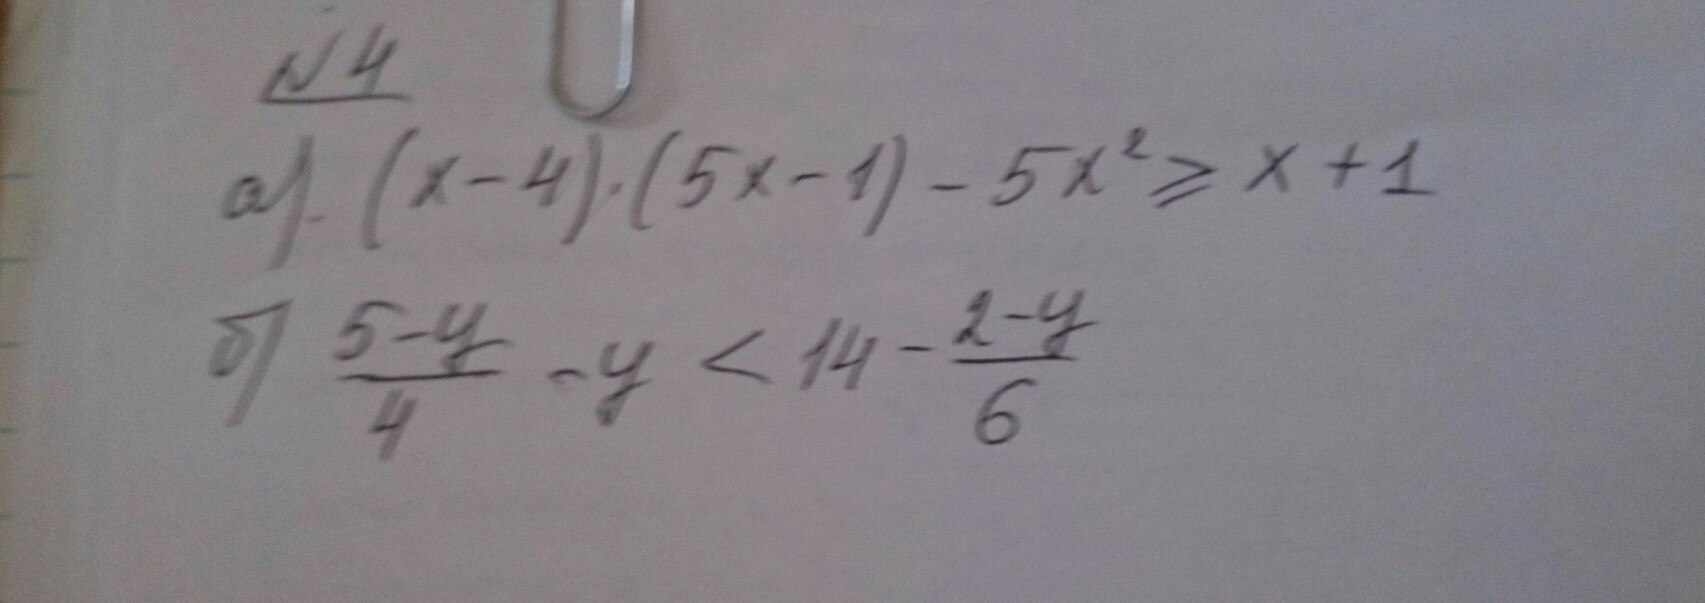 N4
а). (x-4)·(5x-1)-5x²⩾x+1
б) (5-y)/4 -y < 14 - (2-y)/6